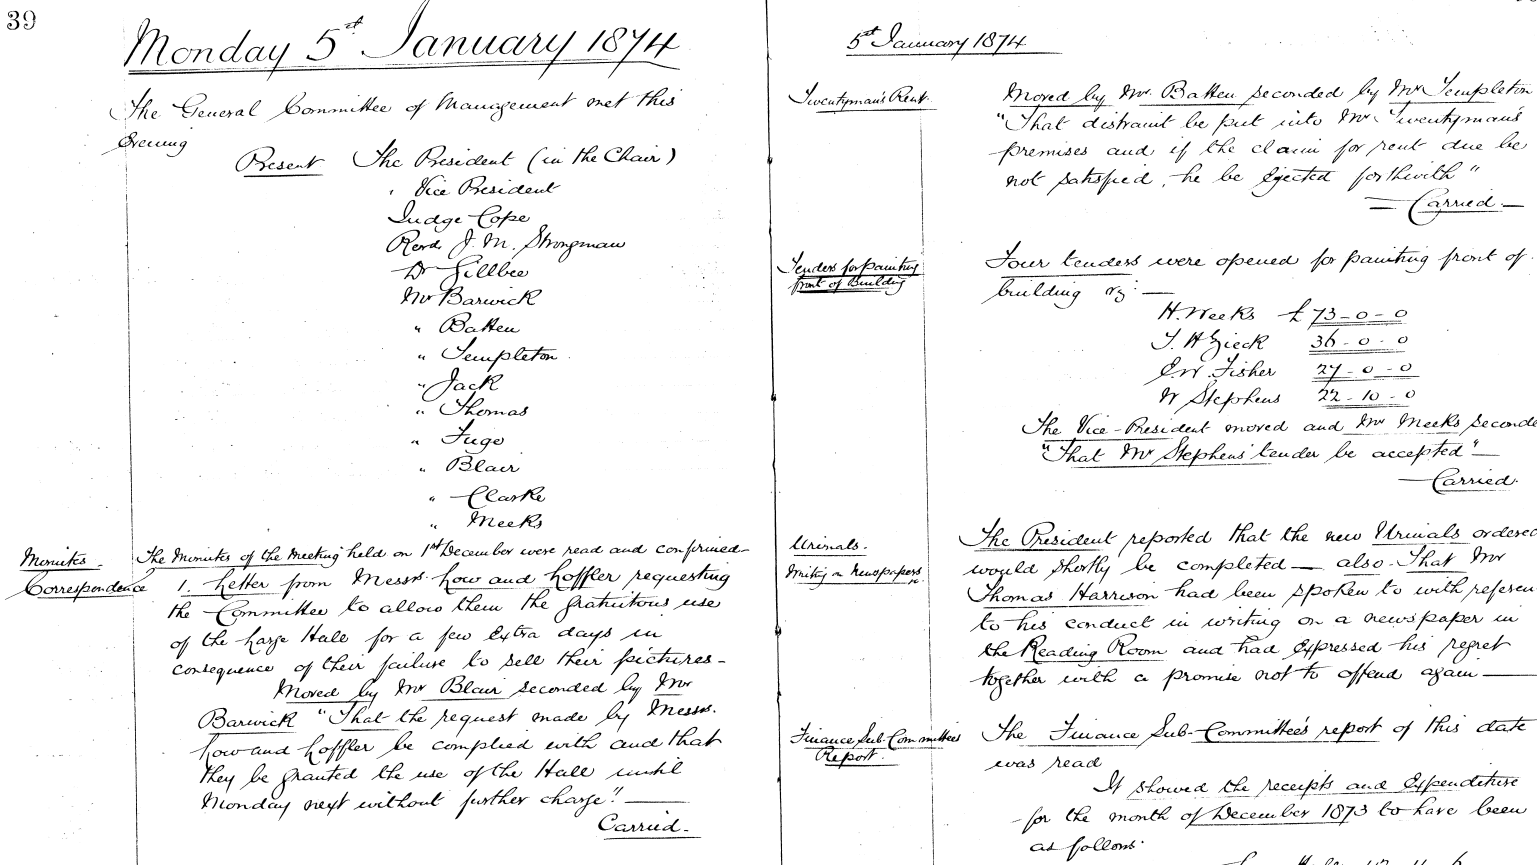 39
Monday 5st January 1874
The General Committee of Management met this
Evening
Present The President (in the Chair)
" Vice President
Judge Cope
Revd. J. M. Strongman
Dr Gillbee
Mr Barwick
" Batten
" Templeton
" Jack
" Thomas
" Fugo
" Blair
" Clarke
" Meeks
Minutes. The Minutes of the Meeting held on 1st December were read and confirmed—
Correspondence 1. Letter from Messrs. Low and Loffler requesting
the Committee to allow them the gratuitous use
of the Large Hall for a few Extra days in
consequence of their failure to sell their pictures—
Moved by Mr Blair seconded by Mr
Barwick "That the request made by Messrs.
Low and Loffler be complied with and that
they be granted the use of the Hall until
Monday next without further charge". —
Carried.
5st January 1874
Twentyman's Rent. Moved by Mr. Batten seconded by Mr Templeton
"That distraint be put into Mr Twentyman's
premises and if the claim for rent due be
not satisfied, he be Ejected forthwith"
— Carried. —
Tenders for painting front of Building
Four tenders were opened for painting front of
building viz: —
H. Weeks £73-0-0
T. H Gieck 36-0-0
E.W. Fisher 27-0-0
W Stephens 22-10-0
The Vice-President moved and Mr Meeks seconde
"That Mr Stephens' tender be accepted" —
— Carried.
Urinals. The President reported that the new Urinals ordered
Writing on Newspapers. would shortly be completed — also. That Mr
Thomas Harrison had been spoken to with referen
to his conduct in writing on a newspaper in
the Reading Room and had Expressed his regret
together with a promise not to offend again —
Finance Sub-Committees Report. The Finance Sub-Committee's report of this date
was read
It showed the receipts and Expenditure
for the month of December 1873 to have been
as follows.